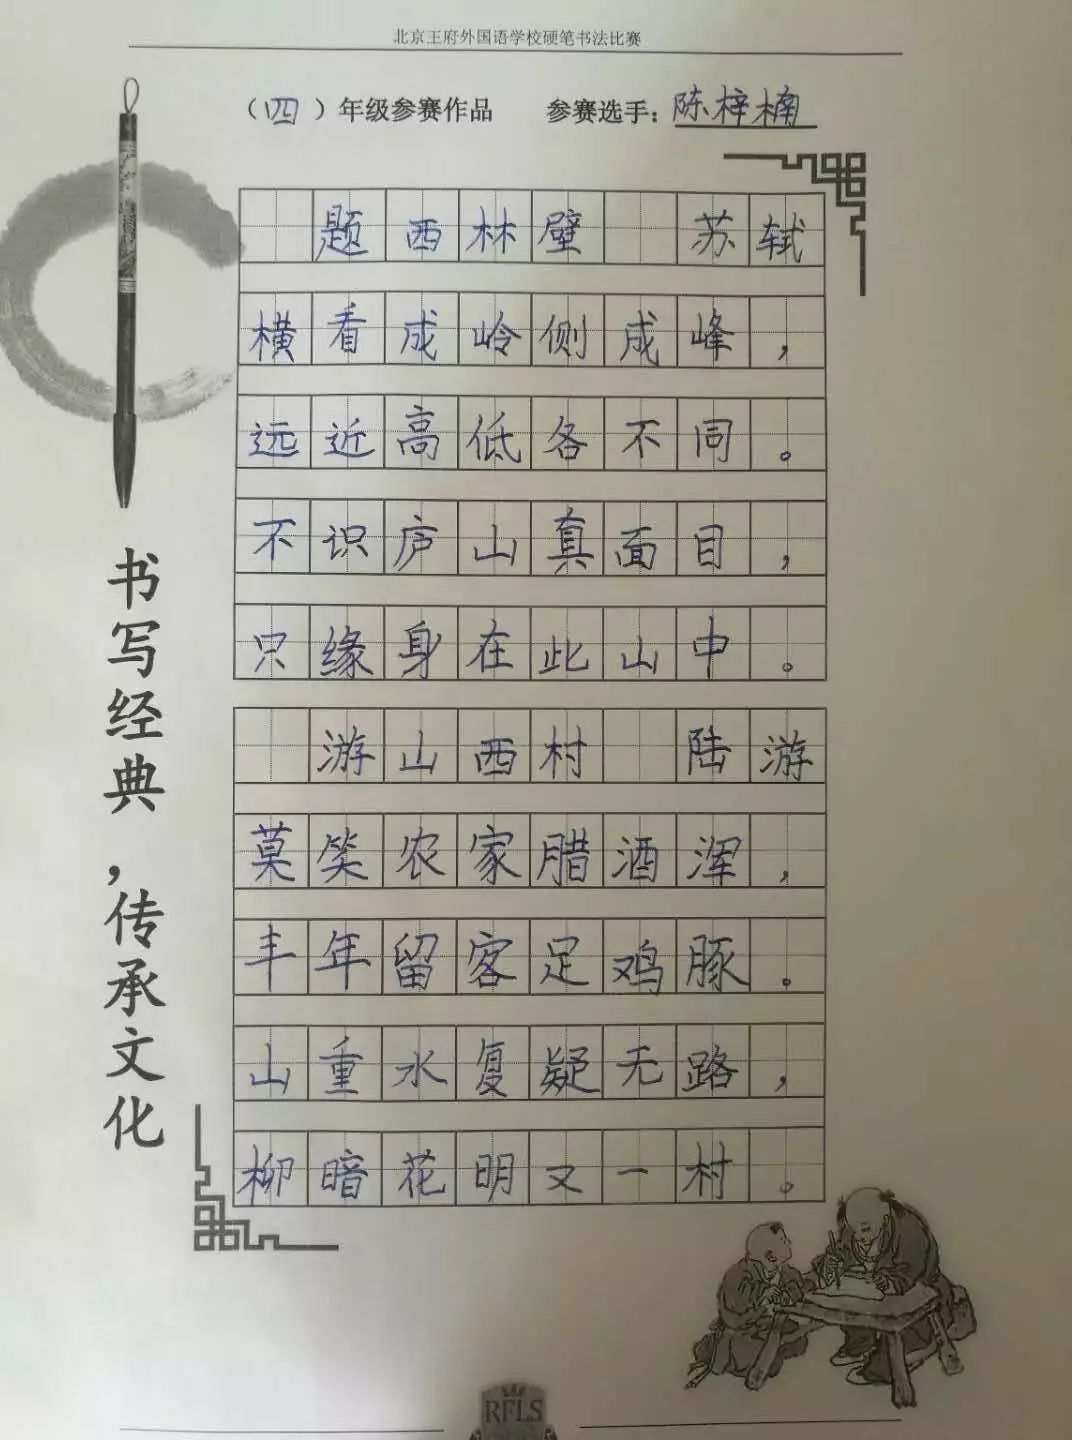 北京王府外国语学校硬笔书法比赛
（四）年级参赛作品 参赛选手：陈梓楠
题西林壁 苏轼
横看成岭侧成峰，
远近高低各不同。
不识庐山真面目，
只缘身在此山中。
游山西村 陆游
莫笑农家腊酒浑，
丰年留客足鸡豚。
山重水复疑无路，
柳暗花明又一村。
书写经典，传承文化
RFLS